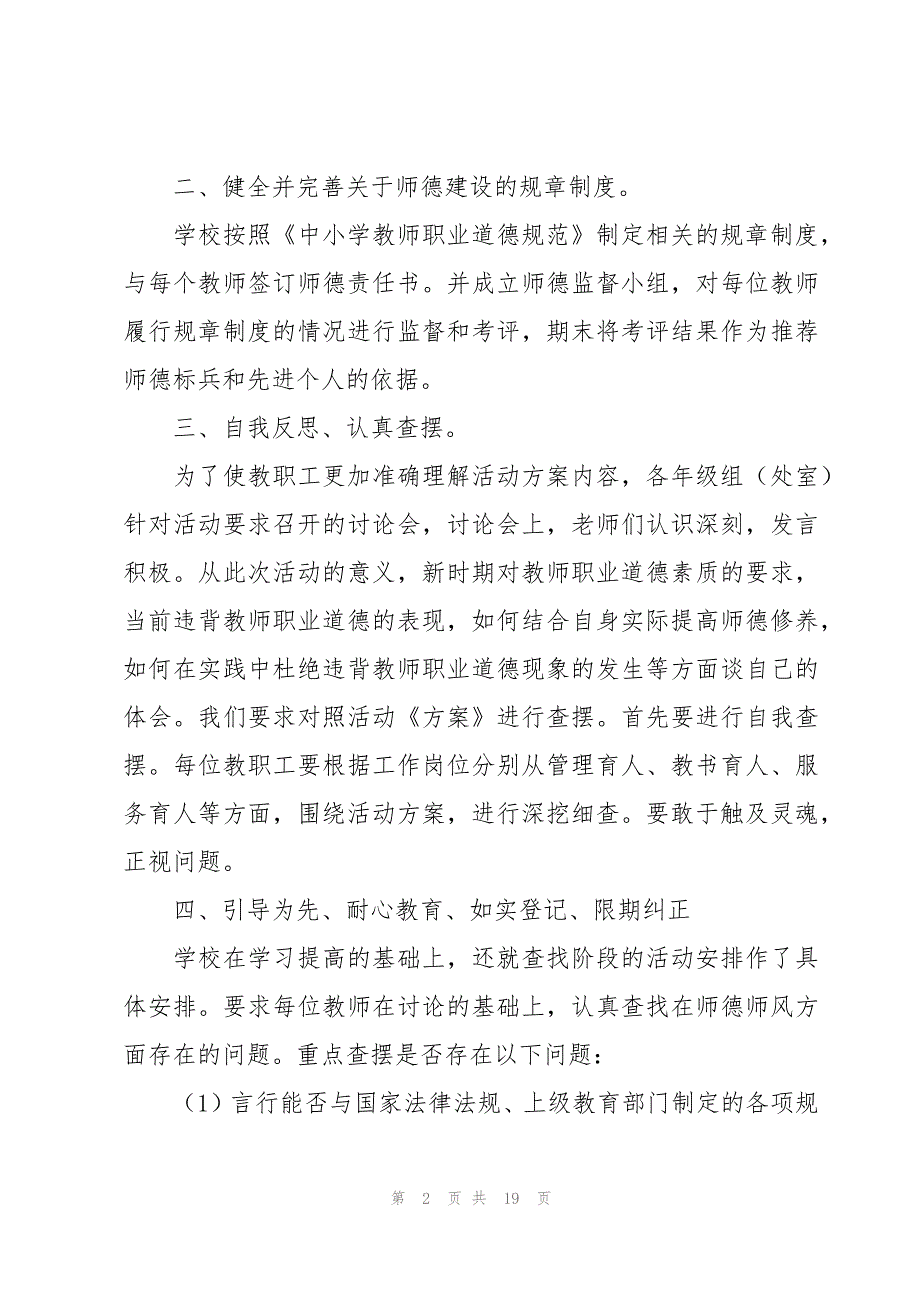 二、健全并完善关于师德建设的规章制度。
学校按照《中小学教师职业道德规范》制定相关的规章制度，
与每个教师签订师德责任书。并成立师德监督小组，对每位教师
履行规章制度的情况进行监督和考评，期末将考评结果作为推荐
师德标兵和先进个人的依据。
三、自我反思、认真查摆。
为了使教职工更加准确理解活动方案内容，各年级组（处室）
针对活动要求召开的讨论会，讨论会上，老师们认识深刻，发言
积极。从此次活动的意义，新时期对教师职业道德素质的要求，
当前违背教师职业道德的表现，如何结合自身实际提高师德修养，
如何在实践中杜绝违背教师职业道德现象的发生等方面谈自己的
体会。我们要求对照活动《方案》进行查摆。首先要进行自我查
摆。每位教职工要根据工作岗位分别从管理育人、教书育人、服
务育人等方面，围绕活动方案，进行深挖细查。要敢于触及灵魂，
正视问题。
四、引导为先、耐心教育、如实登记、限期纠正
学校在学习提高的基础上，还就查找阶段的活动安排作了具
体安排。要求每位教师在讨论的基础上，认真查找在师德师风方
面存在的问题。重点查摆是否存在以下问题：
（1）言行能否与国家法律法规、上级教育部门制定的各项规
第 2 页 共 19 页